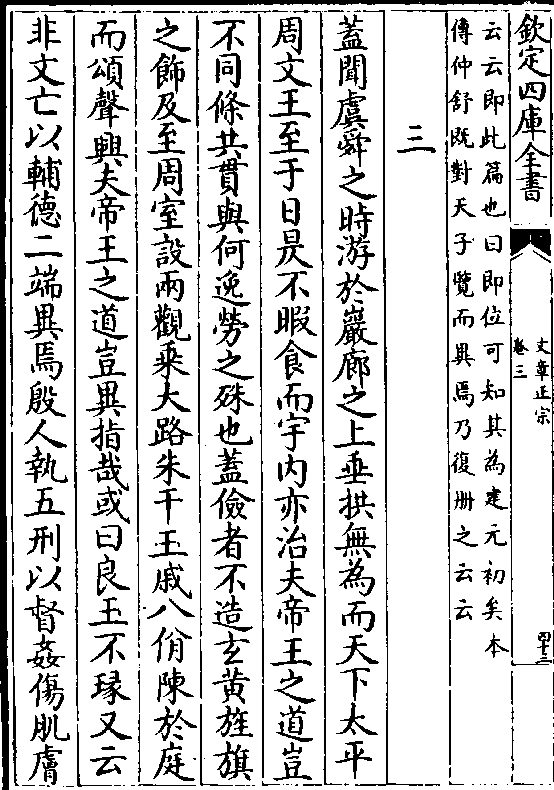 欽定四庫全書
文章正宗
卷三
四十三
云云即此篇也曰即位可知其為建元初矣本
傳仲舒既對天子覽而異焉乃復册之云云
三
蓋聞虞舜之時游於巖廊之上垂拱無為而天下太平
周文王至于日昃不暇食而宇内亦治夫帝王之道豈
不同條共貫與何逸勞之殊也蓋儉者不造玄黄旌旗
之飾及至周室設兩觀乗大路朱干玉戚八佾陳於庭
而頌聲興夫帝王之道豈異指哉或曰良玉不瑑又云
非文亡以輔德二端異焉殷人執五刑以督姦傷肌膚